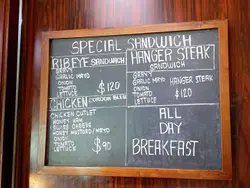 SPECIAL SANDWICH
RIBEYE SANDWICH
GRAVY
GARLIC MAYO
ONION
TOMATO
LETTUCE
$120
CHICKEN CORDON BLEU
CHICKEN CUTLET
HONEY HAM
SWISS CHEESE
HONEY MUSTARD/MAYO
ONION
TOMATO
LETTUCE
$90
HANGER STEAK
SANDWICH
GRAVY
GARLIC MAYO
HANGER STEAK
ONION
TOMATO
LETTUCE
$120
ALL
DAY
BREAKFAST